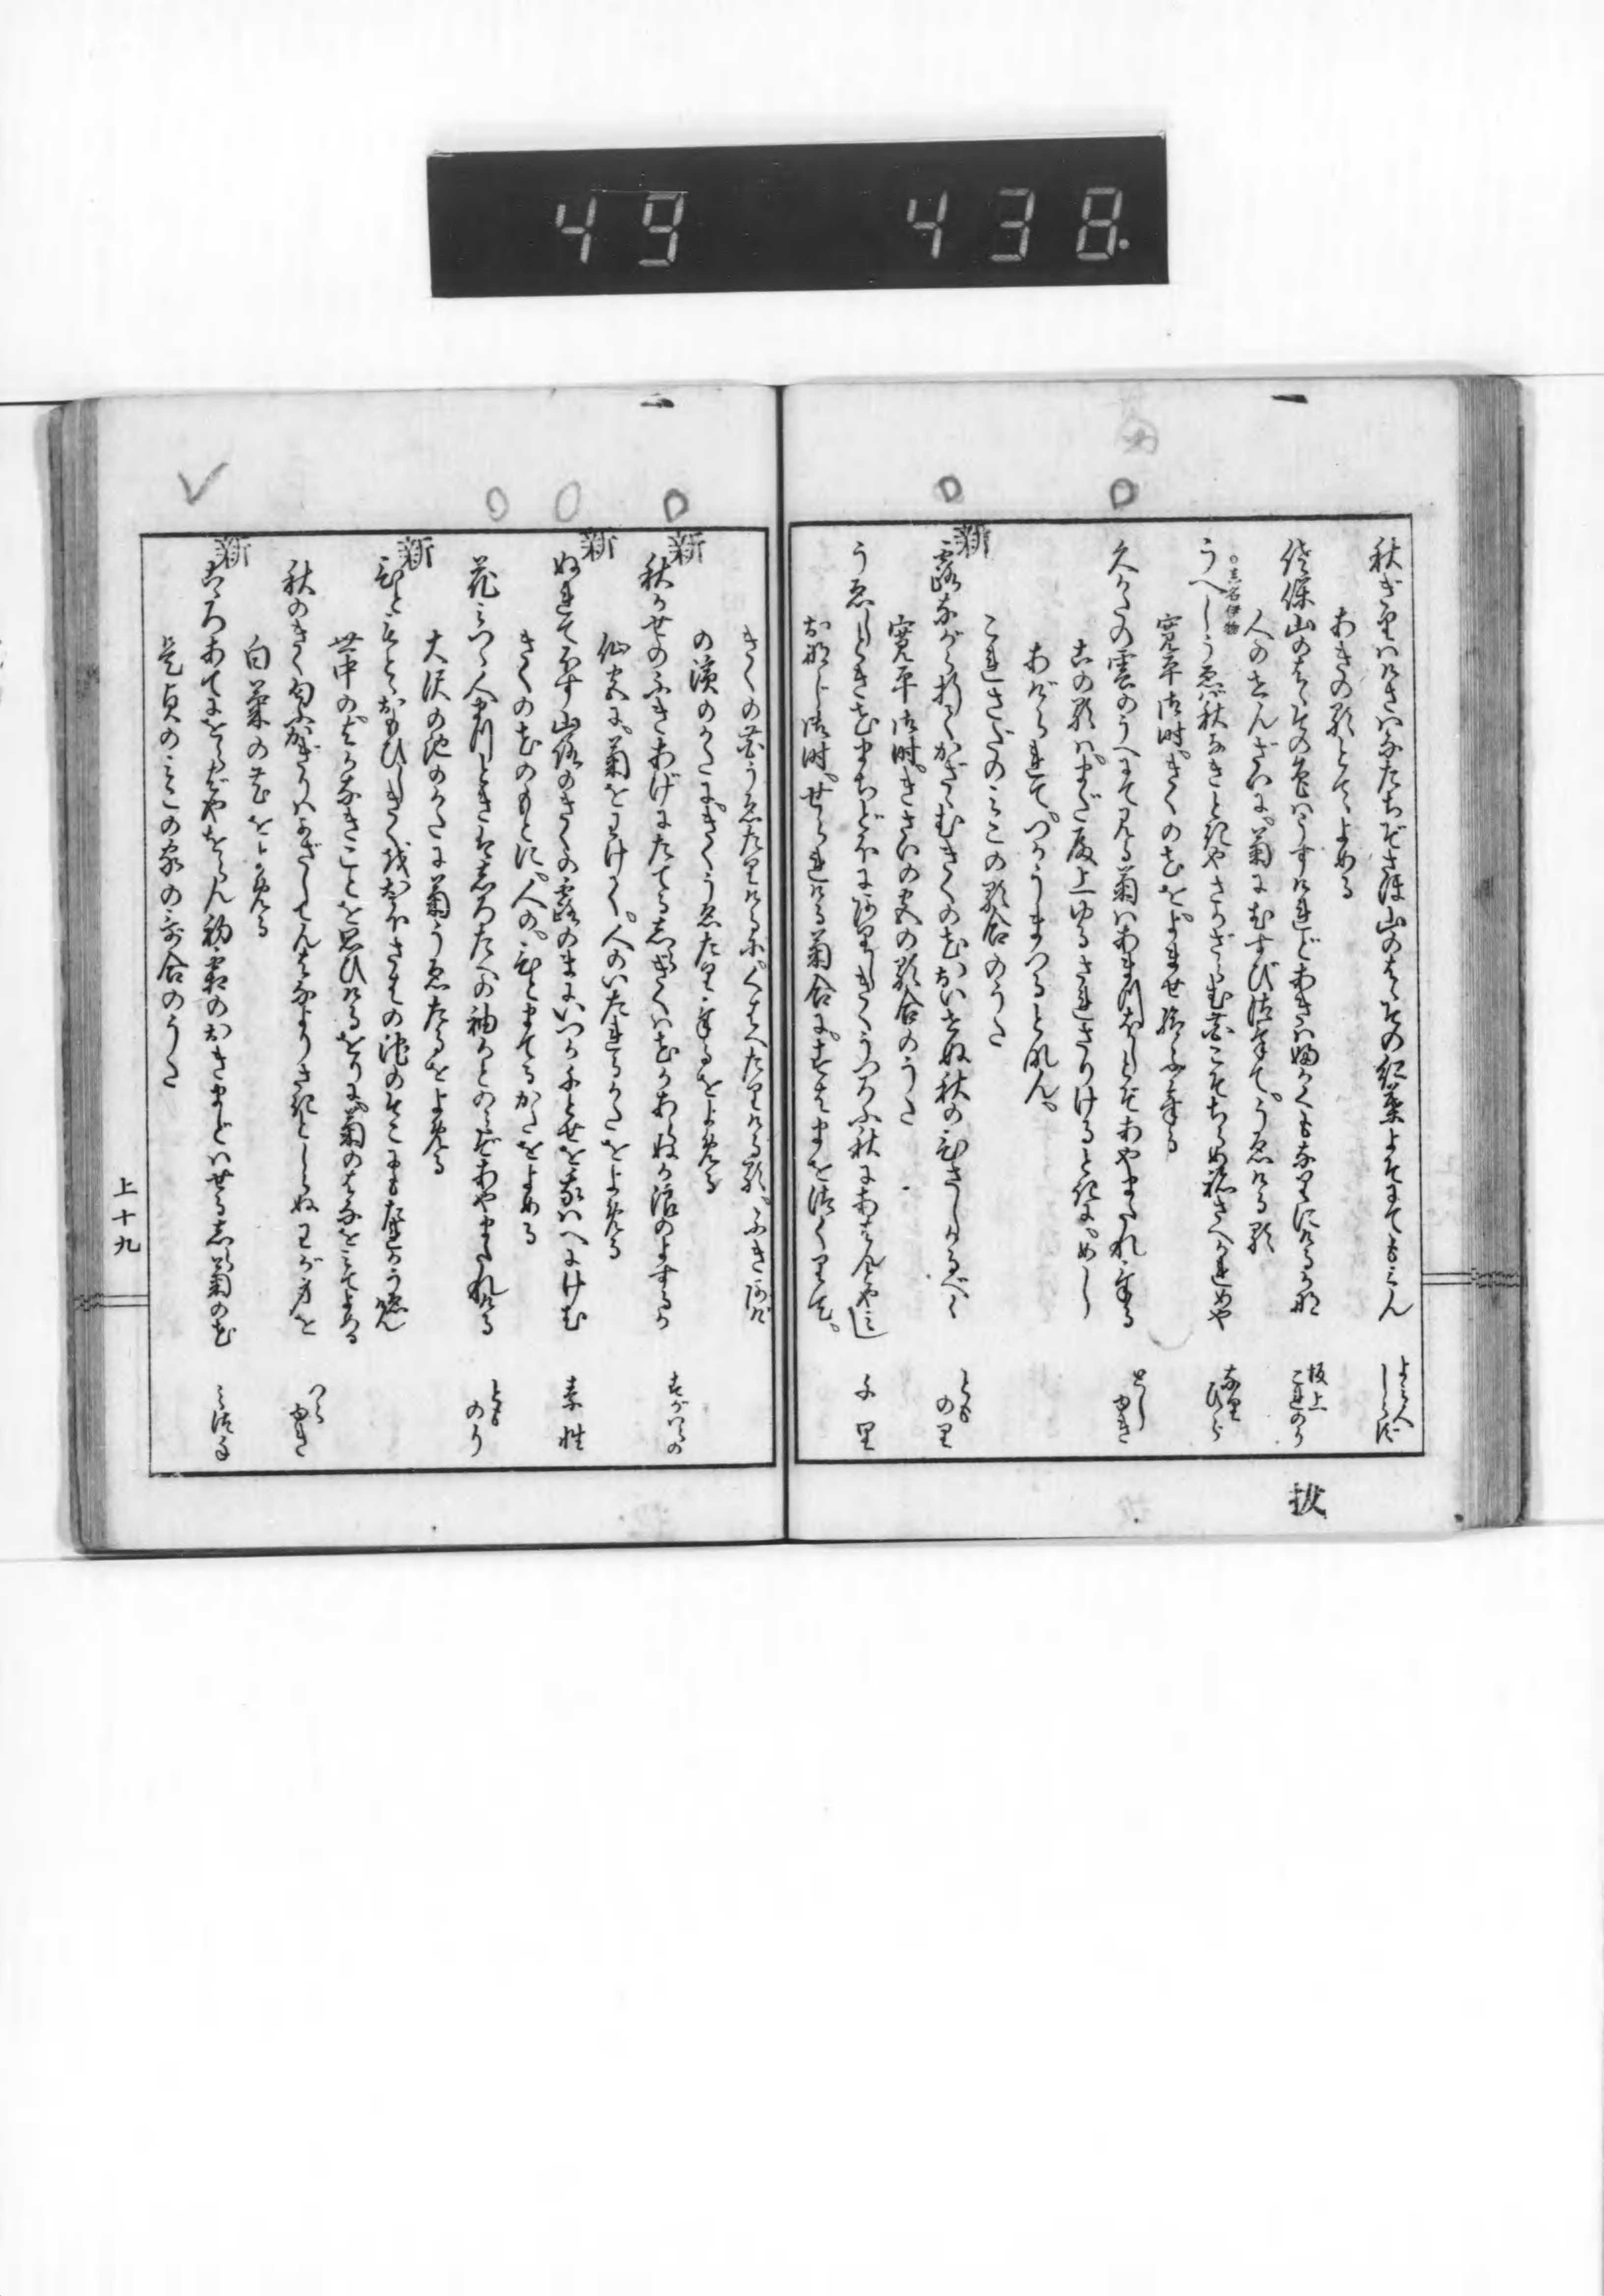 49 438.
秋ぎりハけさハなたちそさほ山のはゝその紅葉よそにてもミん
よミ人しらず
あきの歌とて、よめる
佐保山のはゝその色ハうすけれどあきハ婦かくもなりにける可那
坂上これのり
人のせんざいに。菊にむすび徒けて。うゑける歌
○志石伊物
うへしうゑバ秋なきときやさかざらむ花こそちらめ根さへかれめや
なりひら
寛平御時。きくの花を。よませ給ふける
久かたの雲のうへにて見る菊ハあまつほしとぞあやまたれける
としゆき
この歌ハ。まだ殿上ゆるされざりけるときに。めし
あげられて。つかうまつるとなん。
これさだのミこの歌合のうた
新
露ながら折てかざゝむきくの花おいせぬ秋のひさしかるべく
とものり
寛平御時。きさいの宮の歌合のうた
うゑしとき花まちどほに有しきくうつろふ秋にあはんとやミし
千里
おなじ御時。せられける菊合に。すはまを徒くりて。
きくの花うゑたりけるに。くはへたりける歌。ふき阿げ
の濱のかたに。きくうゑたりけるをよめる
新
秋かぜのふきあげにたてるしらぎくハ花かあらぬか浪のよするか
すがハらの
仙宮に。菊をわけて。人のいたれるかたをよめる
新
ぬれてほす山路のきくの露のまにいつか千とせを我ハへにけむ
素性
きくの花のもとに。人の。ひとまてるかたをよめる
花ミつゝ人まつときはしろたへの袖かとのミぞあやまたれける
とものり
大沢の池のかたに菊うゑたるをよめる
新
ひともとゝおもひしきくをおほさはの池のそこにも誰かうゑけん
世中の。はかなきことを思ひけるをりに。菊のはなをミてよめる
秋のきく匂ふかぎりハかざしてんはなよりさきとしらぬわが身を
つらゆき
白菊の花をよめる
新
こゝろあてにをらばやをらん初霜のおきまどハせる志ら菊の花
ミ徒ね
是貞のミこの家の哥合のうた
上十九
抜